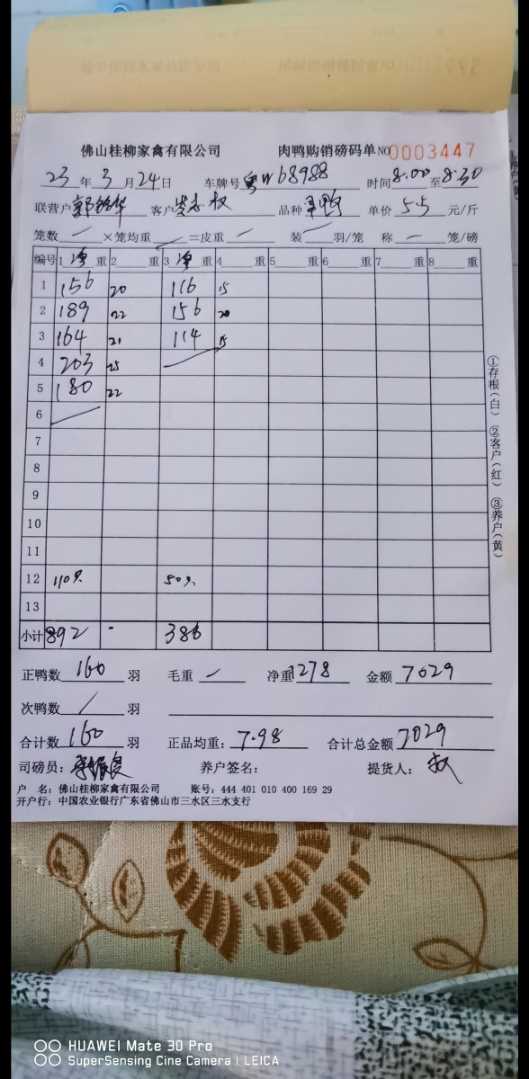 佛山桂柳家禽有限公司 肉鸭购销磅码单 NO0003447
23年3月24日 车牌号粤W68988 时间8:00至8:30
联营户 客户 权 品种 鸭 单价5.5元/斤
笼数 ×笼均重 =皮重 装 羽/笼 称 笼/磅
编号 1净重 2 重 3净重 4 重 5 重 6 重 7 重 8 重
1 156 20 116 15
2 189 22 156 20
3 164 21 114 15
4 203 25
5 180 22
6
7
8
9
10
11
12 110只 50只
13
小计 892 386
①存根(白) ②客户(红) ③养户(黄)
正鸭数160羽 毛重 净重1278 金额7029
次鸭数 羽
合计数160羽 正品均重:7.98 合计总金额7029
司磅员: 养户签名: 提货人:权
户 名:佛山桂柳家禽有限公司 账号:444 401 010 400 169 29
开户行:中国农业银行广东省佛山市三水区三水支行
HUAWEI Mate 30 Pro
SuperSensing Cine Camera | LEICA